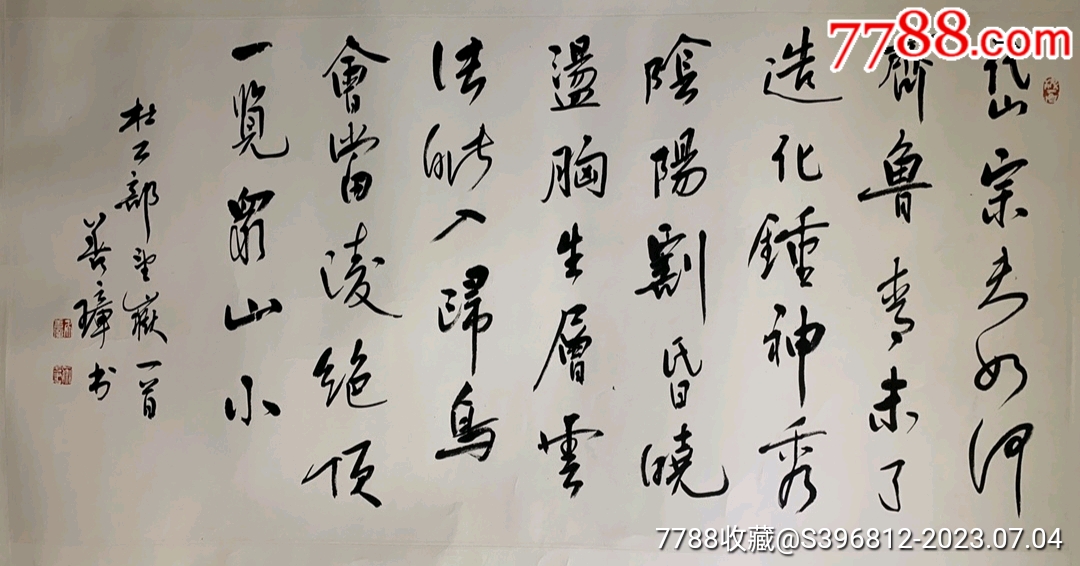 岱宗夫如何
齊魯青未了
造化鍾神秀
陰陽割昏曉
盪胸生層雲
決眦入歸鳥
會當凌絕頂
一覽眾山小
杜工部望嶽一首
善璋書
7788.com
7788收藏@S396812-2023.07.04